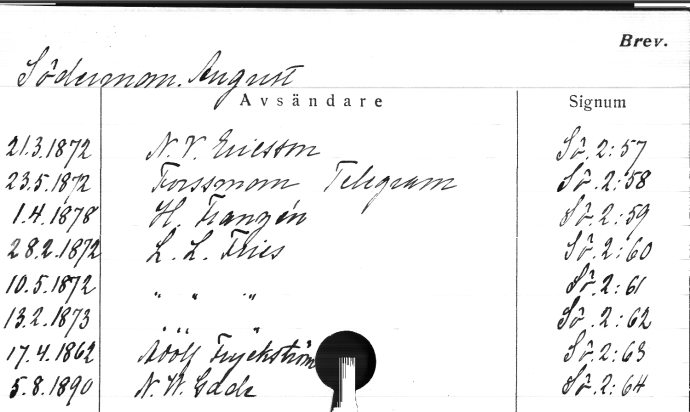 Brev.
Söderman. August
Avsändare Signum
21.3.1872 N. V. Ericsson Sö. 2:57
23.5.1872 Forssmom Telegram Sö. 2:58
1.4.1878 Hj. Franzén Sö. 2:59
28.2.1872 L. L. Fries Sö. 2:60
10.5.1872 " " " Sö. 2:61
13.2.1873 " " " Sö. 2:62
17.4.1862 Adolf Fryckström Sö. 2:63
5.8.1890 N. W. Gade Sö. 2:64